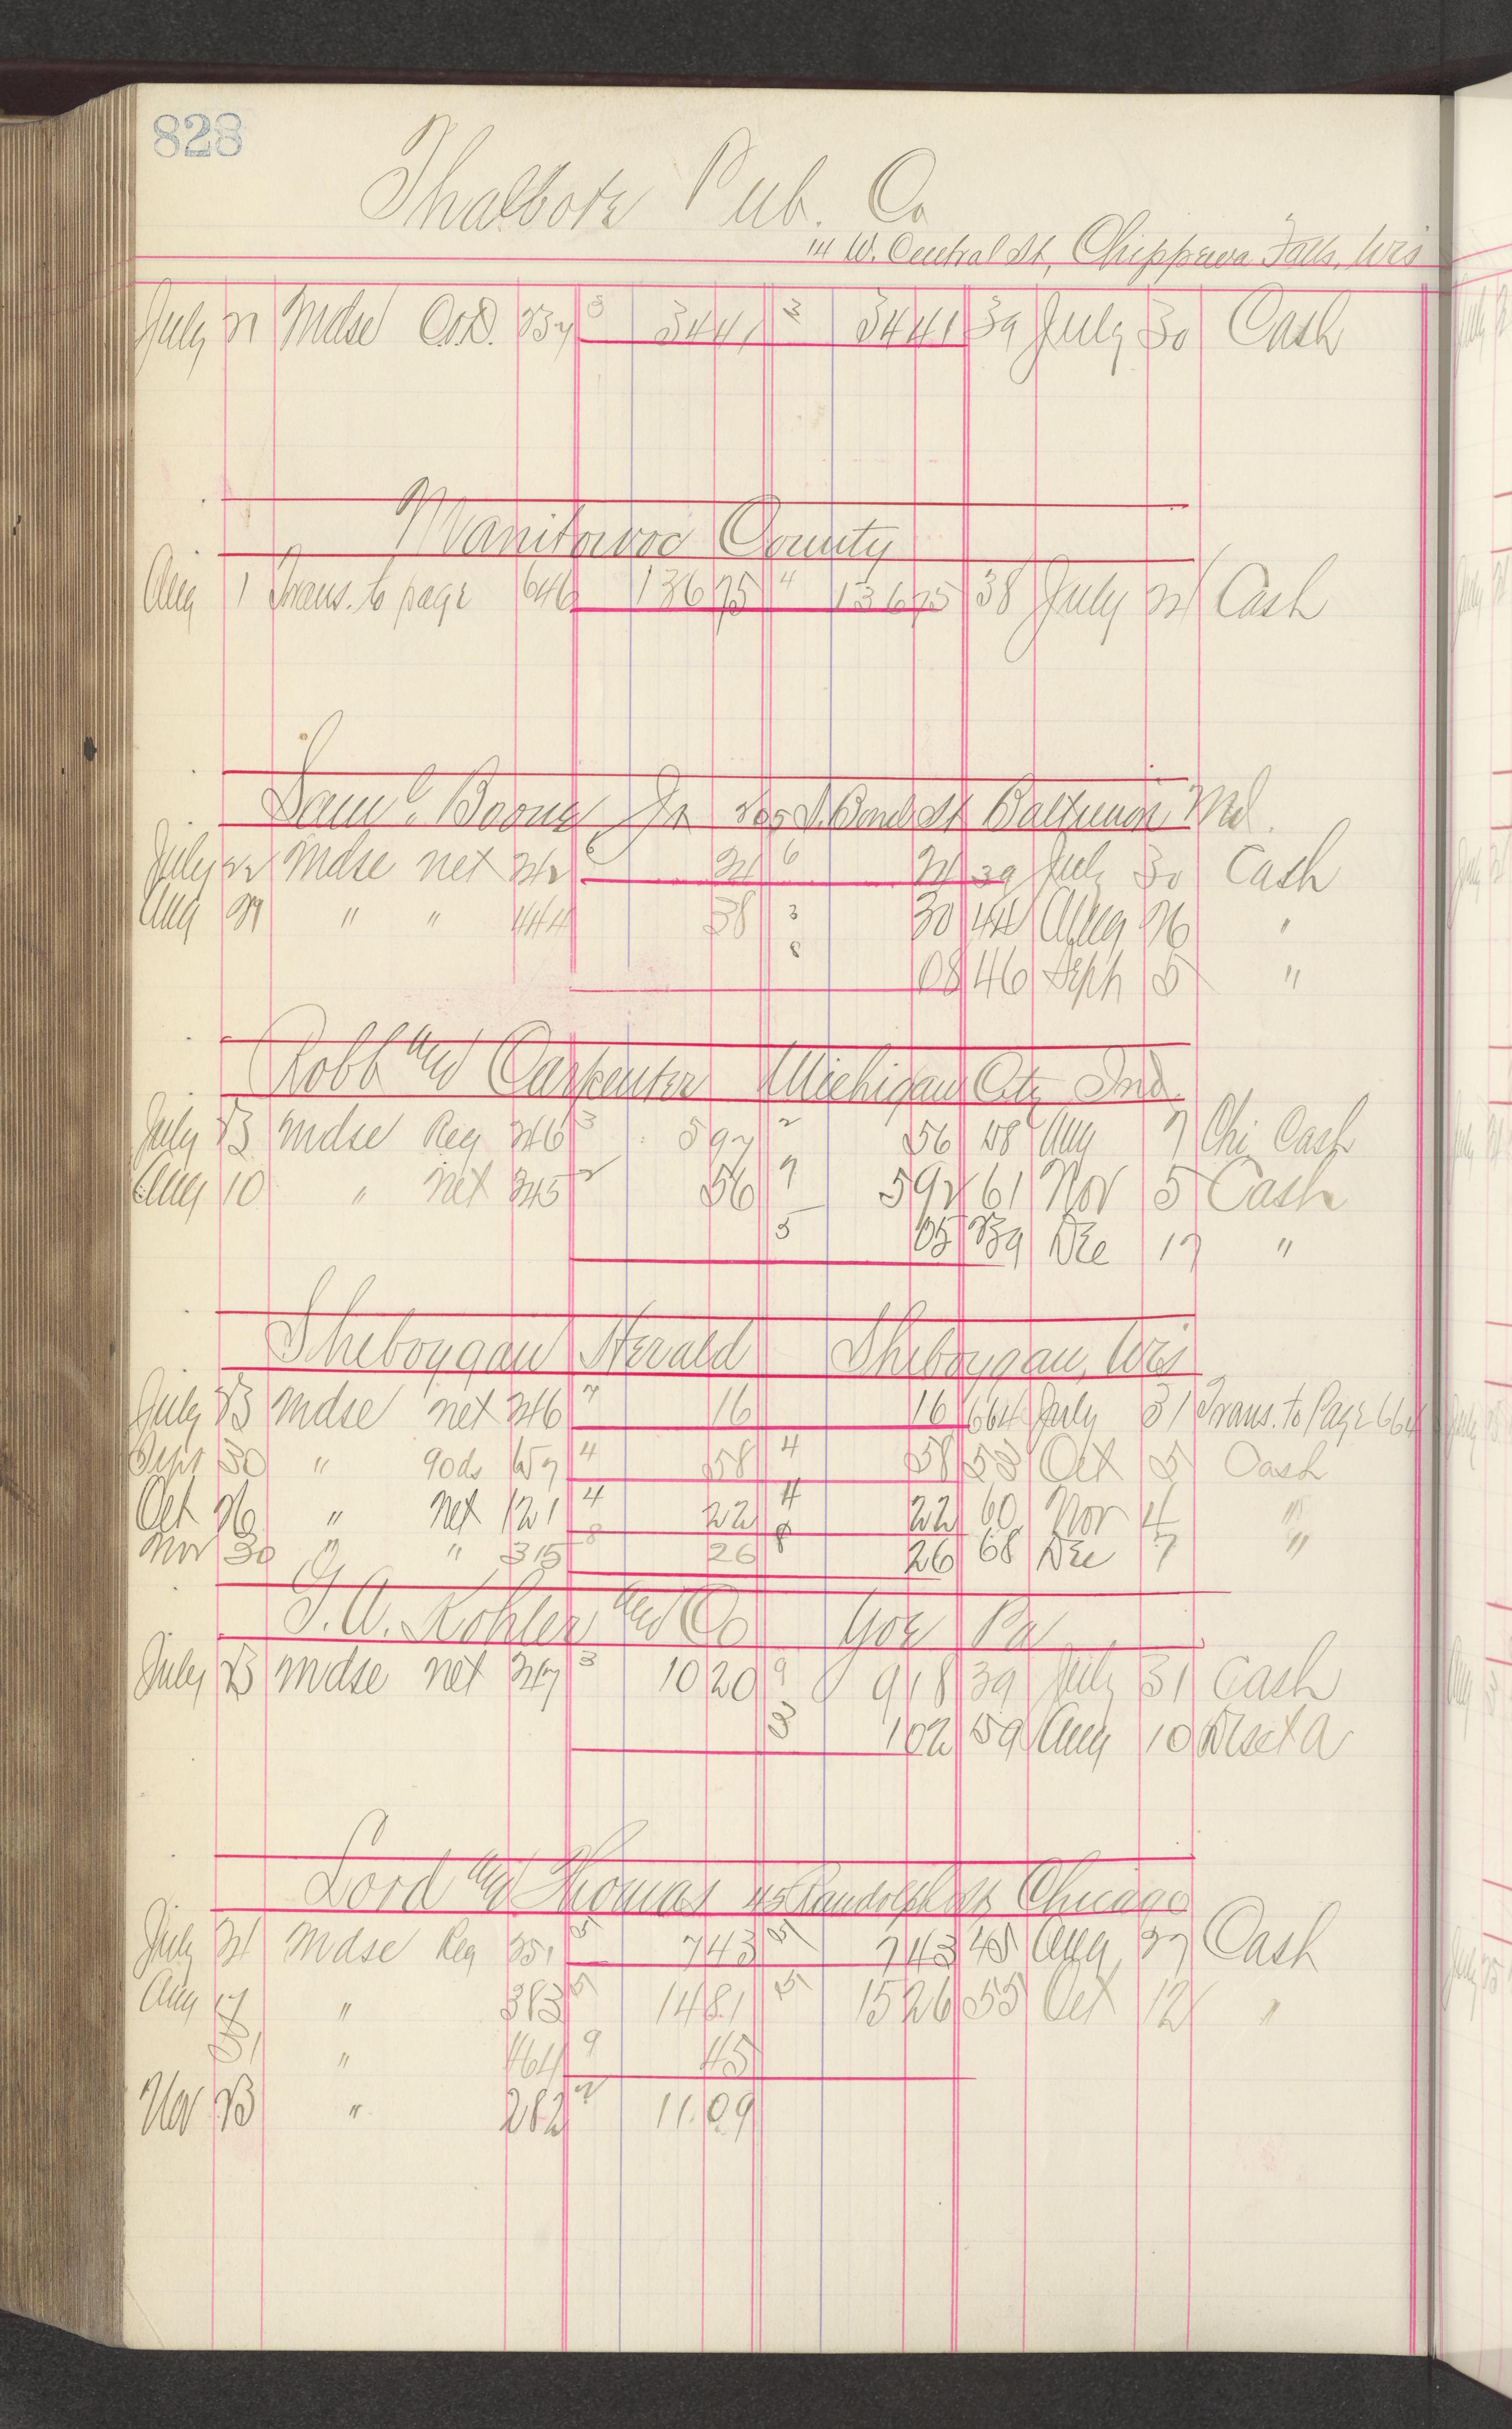 828
Thalbote Pub. Co
114 W. Central St, Chippewa Falls, Wis
July 21 Mdse C.O.D. 237 3 3441 3 3441 39 July 30 Cash
Manitowoc County
Aug 1 Trans. to page 646 136 75 4 136 75 38 July 24 Cash
Saml. Boone Jr Bond St Baltimore Md.
July 22 Mdse net 242 6 24 6 24 39 July 30 Cash
Aug 29 " " 444 38 3 30 44 Aug 26 "
8 08 46 Sept 5 "
Robb and Carpenter Michigan City Ind.
July 23 Mdse Reg 246 3 592 2 56 48 Aug 7 Chi Cash
Aug 10 " net 345 2 56 7 592 61 Nov 5 Cash
5 05 239 Dec 17 "
Sheboygan Herald Sheboygan, Wis
July 23 Mdse net 246 7 16 16 664 July 31 Trans. to Page 664
Sept 30 " 90ds 657 4 58 4 58 53 Oct 5 Cash
Oct 26 " Net 121 4 22 4 22 60 Nov 4 "
Nov 30 " " 315 8 26 8 26 68 Dec 7 "
T. A. Kohler and Co Yoe Pa
July 23 Mdse net 247 3 10 20 9 9 18 39 July 31 Cash
3 1 02 59 Aug 10 Disct A
Lord and Thomas 45 Randolph St Chicago
July 24 Mdse Reg 251 5 743 5 743 48 Aug 27 Cash
Aug 17 " 383 5 1481 5 1526 55 Oct 12 "
31 " 464 9 45
Nov 23 " 282 2 11.09